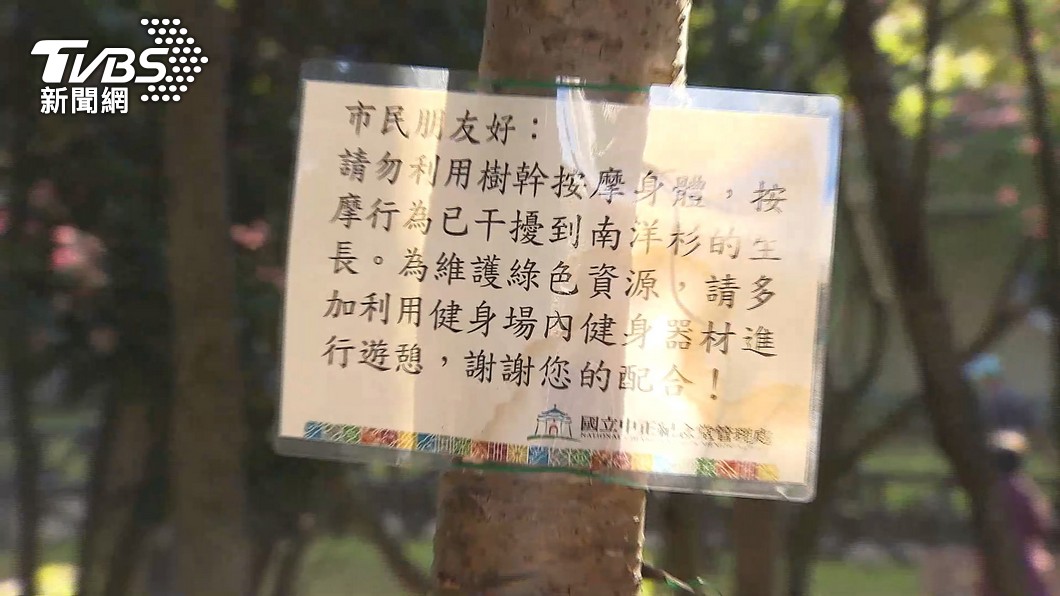 TVBS
新聞網
市民朋友好：
請勿利用樹幹按摩身體，按
摩行為已干擾到南洋杉的生
長。為維護綠色資源，請多
加利用健身場內健身器材進
行遊憩，謝謝您的配合！
國立中正紀念堂管理處